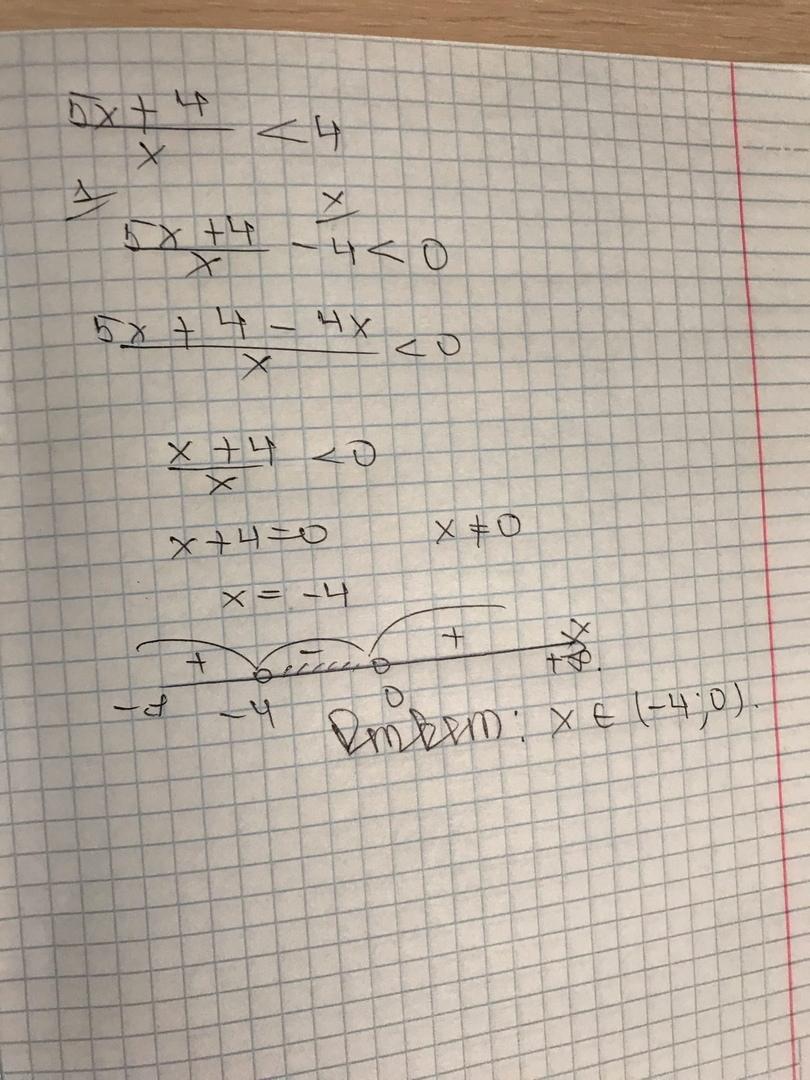 5x + 4 / x < 4
1 x
5x + 4 / x - 4 < 0
5x + 4 - 4x / x < 0
x + 4 / x < 0
x + 4 = 0 x ≠ 0
x = -4
+ - + x
-∞ -4 0 +∞.
Ответ: x ∈ (-4; 0).